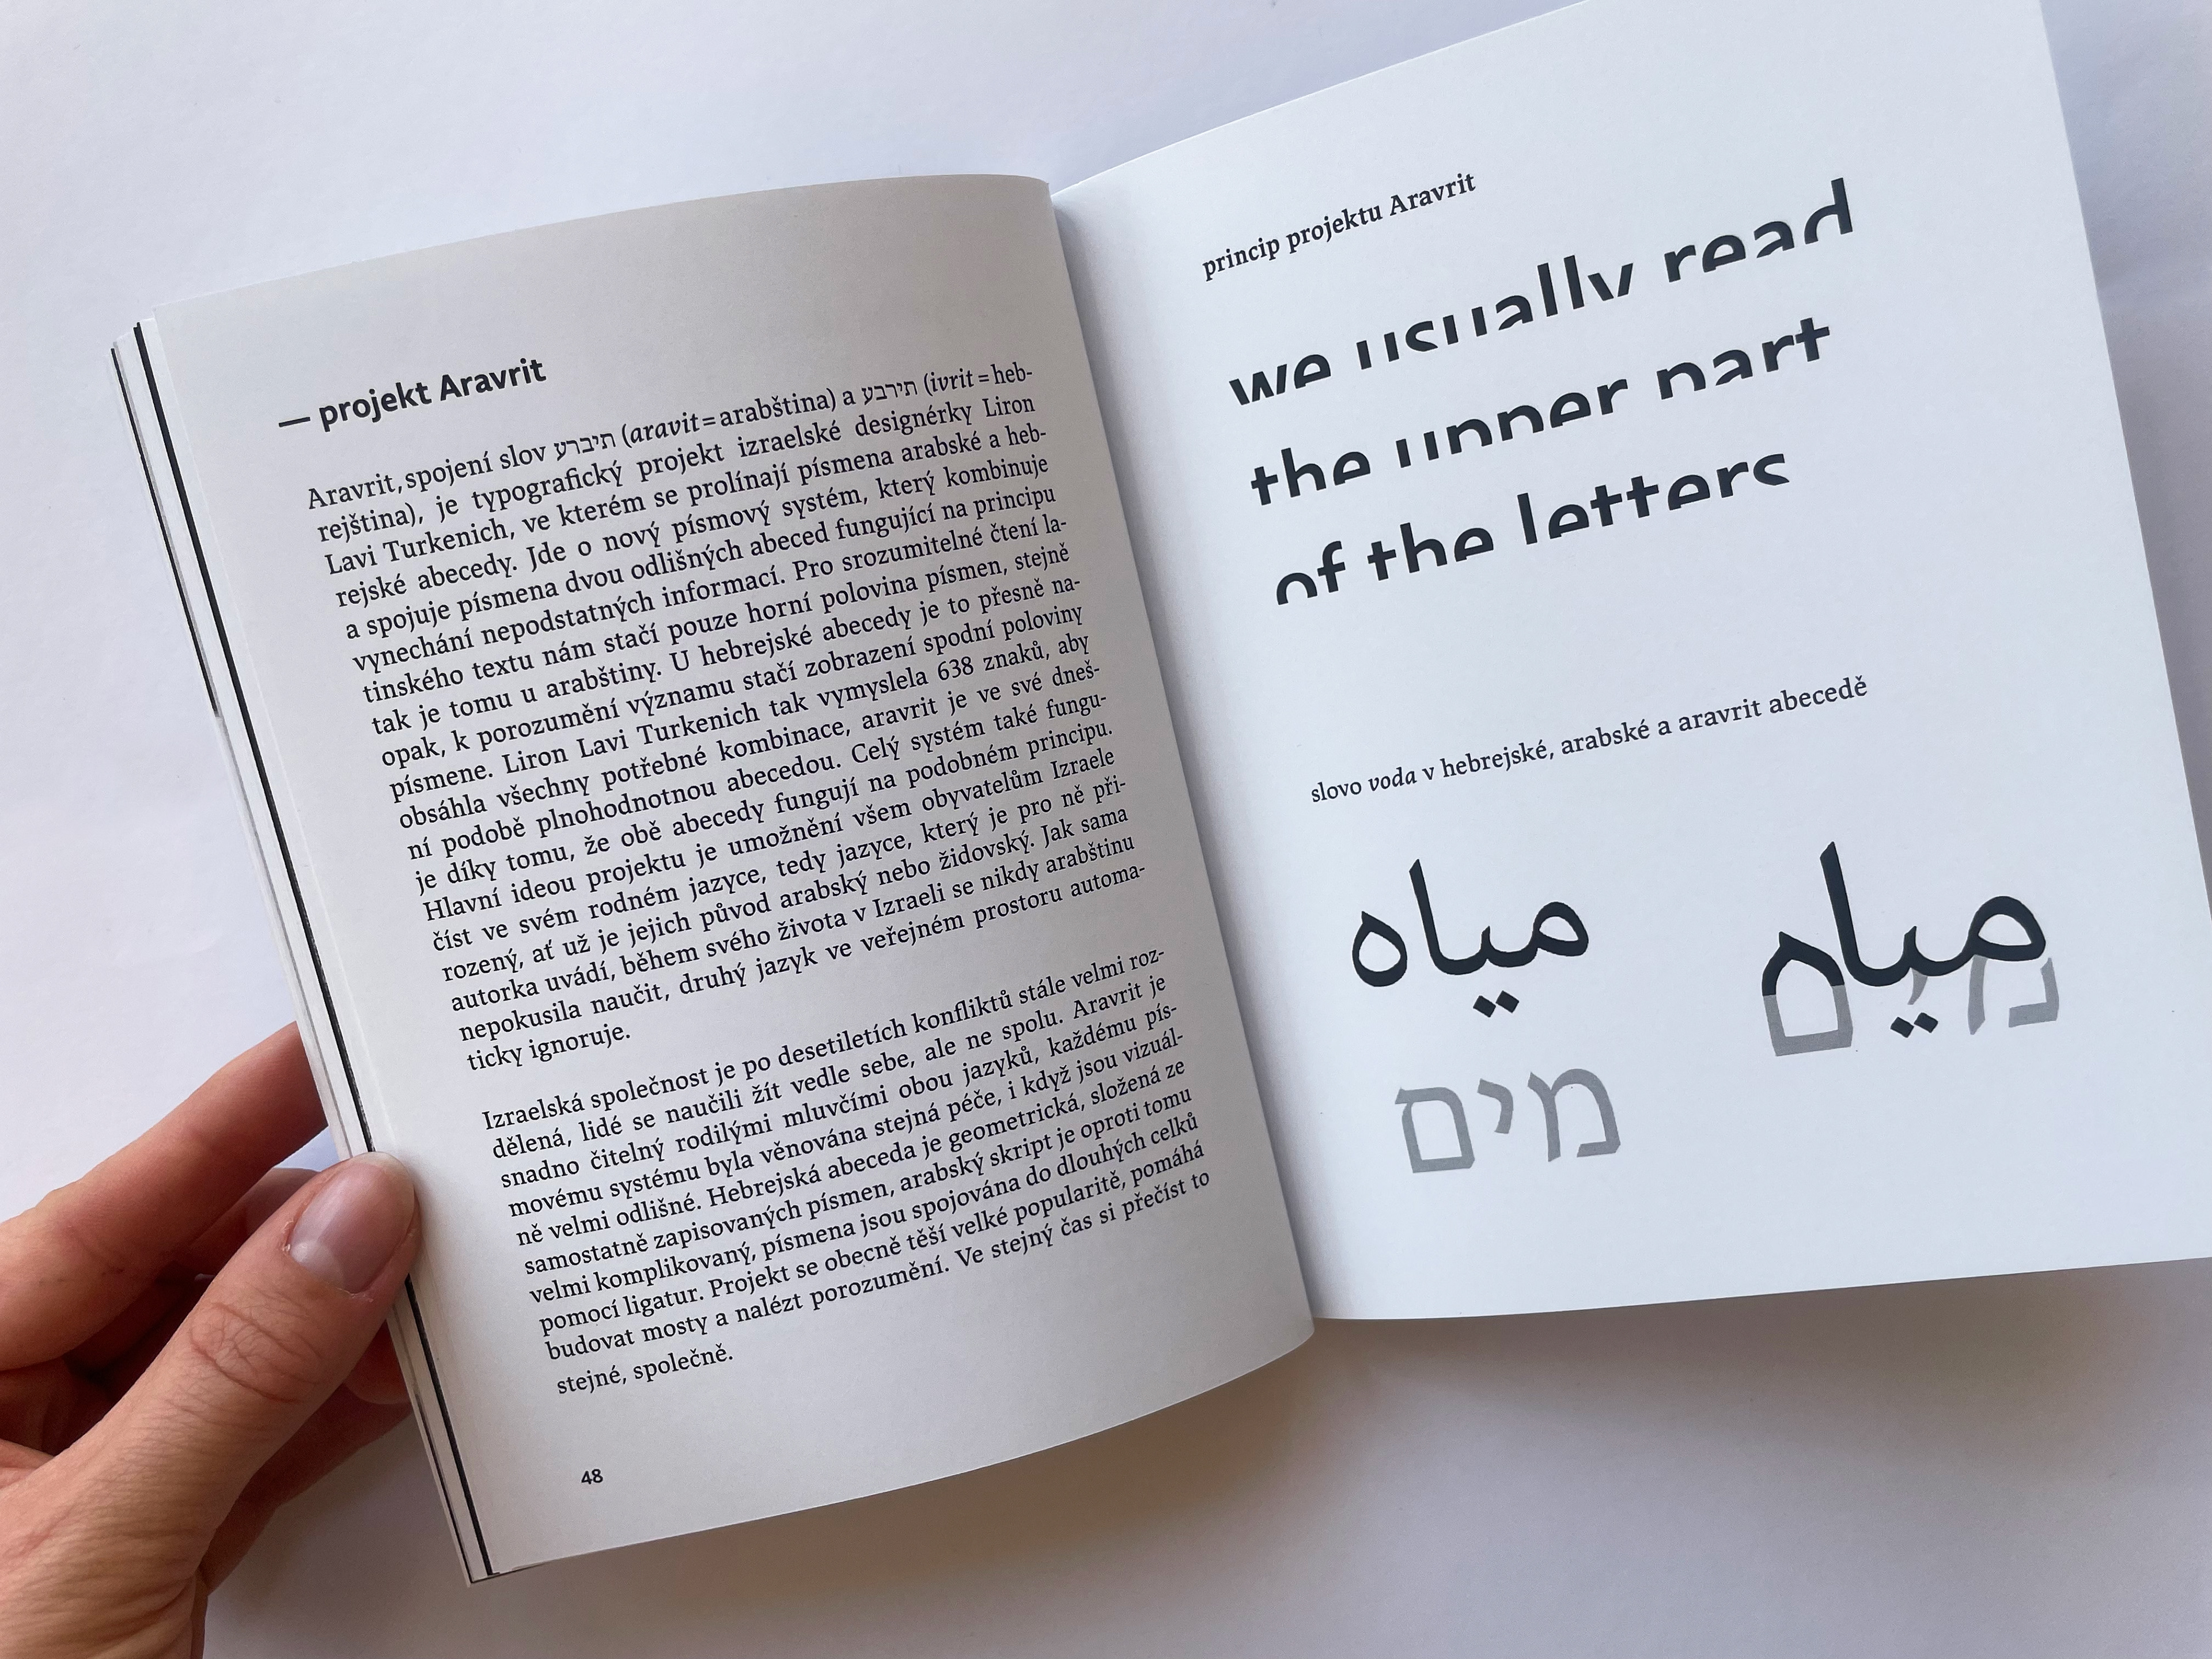 — projekt Aravrit
Aravrit, spojení slov תיברע (aravit = arabština) a תירבע (ivrit = heb-
rejština), je typografický projekt izraelské designérky Liron
Lavi Turkenich, ve kterém se prolínají písmena arabské a heb-
rejské abecedy. Jde o nový písmový systém, který kombinuje
a spojuje písmena dvou odlišných abeced fungující na principu
vynechání nepodstatných informací. Pro srozumitelné čtení la-
tinského textu nám stačí pouze horní polovina písmen, stejně
tak je tomu u arabštiny. U hebrejské abecedy je to přesně na-
opak, k porozumění významu stačí zobrazení spodní poloviny
písmene. Liron Lavi Turkenich tak vymyslela 638 znaků, aby
obsáhla všechny potřebné kombinace, aravrit je ve své dneš-
ní podobě plnohodnotnou abecedou. Celý systém také fungu-
je díky tomu, že obě abecedy fungují na podobném principu.
Hlavní ideou projektu je umožnění všem obyvatelům Izraele
číst ve svém rodném jazyce, tedy jazyce, který je pro ně při-
rozený, ať už je jejich původ arabský nebo židovský. Jak sama
autorka uvádí, během svého života v Izraeli se nikdy arabštinu
nepokusila naučit, druhý jazyk ve veřejném prostoru automa-
ticky ignoruje.
Izraelská společnost je po desetiletích konfliktů stále velmi roz-
dělená, lidé se naučili žít vedle sebe, ale ne spolu. Aravrit je
snadno čitelný rodilými mluvčími obou jazyků, každému pís-
movému systému byla věnována stejná péče, i když jsou vizuál-
ně velmi odlišné. Hebrejská abeceda je geometrická, složená ze
samostatně zapisovaných písmen, arabský skript je oproti tomu
velmi komplikovaný, písmena jsou spojována do dlouhých celků
pomocí ligatur. Projekt se obecně těší velké popularitě, pomáhá
budovat mosty a nalézt porozumění. Ve stejný čas si přečíst to
stejné, společně.
48
princip projektu Aravrit
we usually read
the upper part
of the letters
slovo voda v hebrejské, arabské a aravrit abecedě
مياه
מים